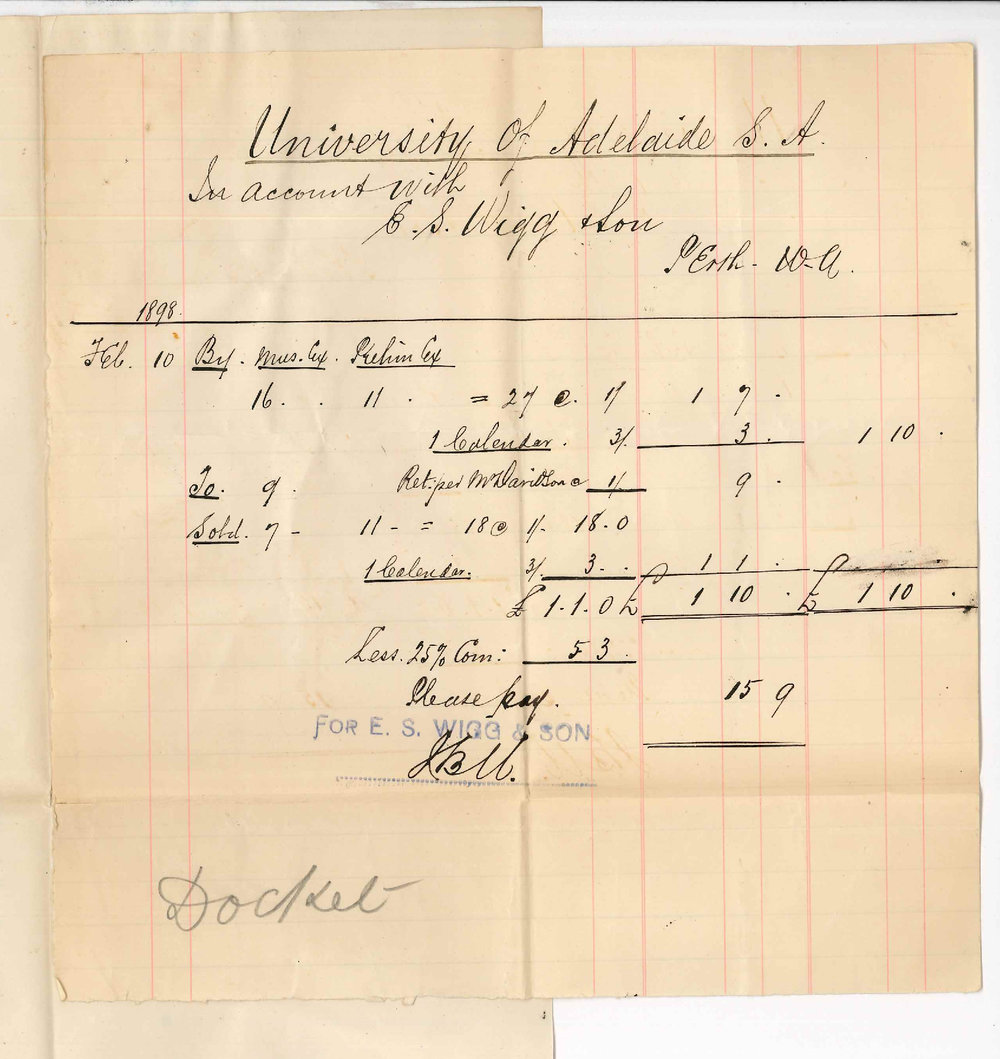 University Of Adelaide S. A.
In account with
E. S. Wigg & Son
Perth - W-A.
1898.
Feb. 10 By. Mus. Ex. Prelim Ex
16 . . 11 . = 27 @. 1/ 1 7 .
1 Calendar. 3/. 3 . 1 10 .
To. 9 . Ret. per Mr Davidson @ 1/ 9 .
Sold. 7 - 11 - = 18 @ 1/- 18.0
1 Calendar. 3/. 3 . . 1 1 .
£ 1.1.0 £ 1 10 . £ 1 10 .
Less. 25% Com: 5 3
Please pay. 15 9
FOR E. S. WIGG & SON
Docket